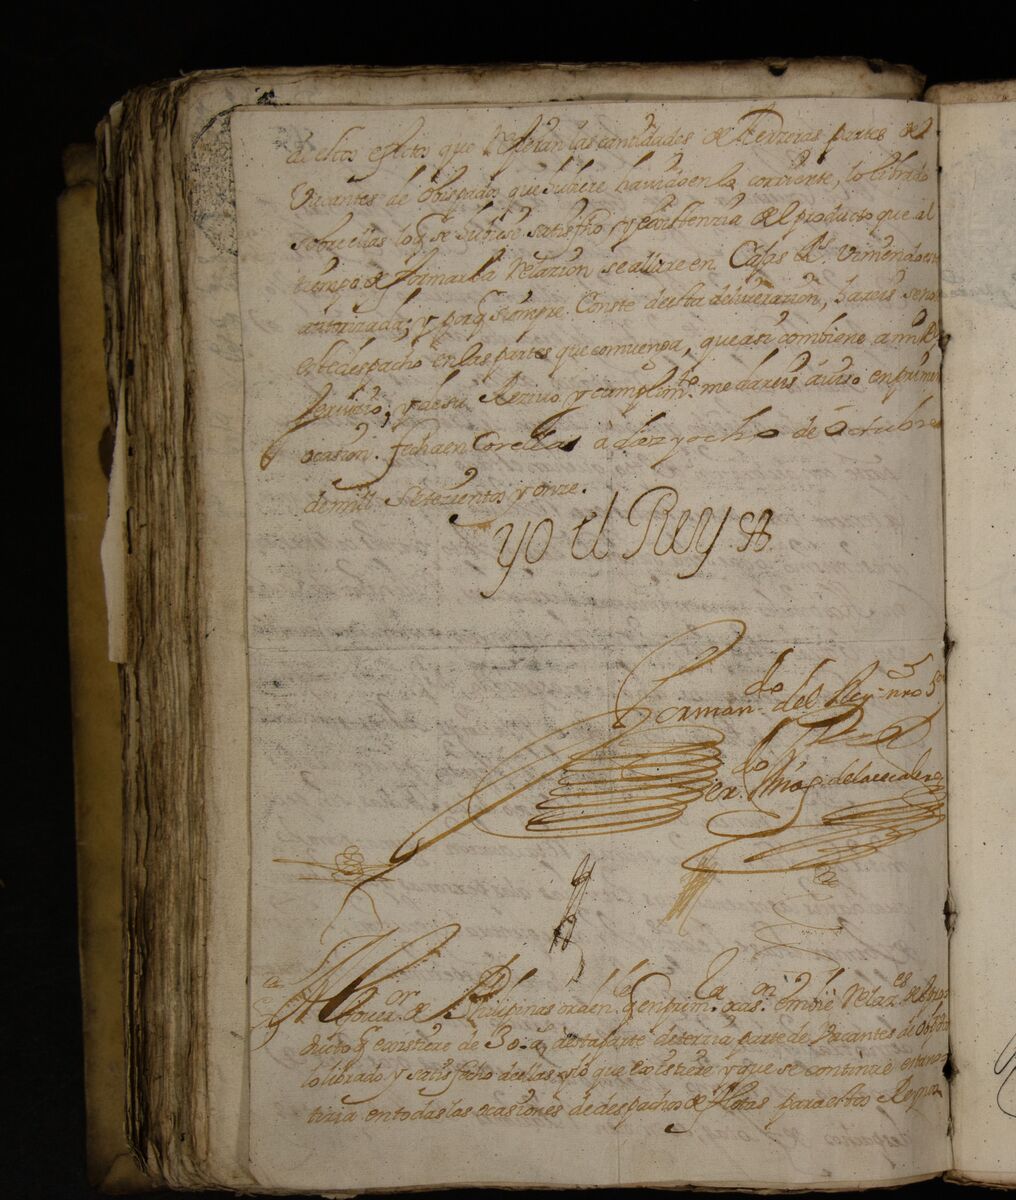 destos efectos que Refieran las cantidades de Terzeras partes de
Vacantes de obispados que hubiere havido en la corriente, lo librado
sobre ellas lo q se hubiese satisfho y existenzia del producto que al
tiempo de formar la relazion se allare en Cajas Rs. viniendo
autorizada; y porq siempre Conste desta deliverazion, hareis
este despacho en las partes que convenga, que asi combiene a mi Rl
servizio, y de su Rezivo y cumplimto. me dareis aviso en primera
ocasion. fecha en Corella a diez y ocho de octubre
de mill setezientos y onze.
yo el Rey
Por mando. del Rey nro Sor
 Po.
A Gover.or de Philipinas orden.le q en prim.ra ocas.n embie relaz.es del pro
ducto q existiere de 30 as a esta parte de terzia parte de vacantes de obispados
lo librado y satisfecho dellas y lo que existiere y que se continue esta no
tizia en todas las ocasiones de despachos de flotas para estos Reynos